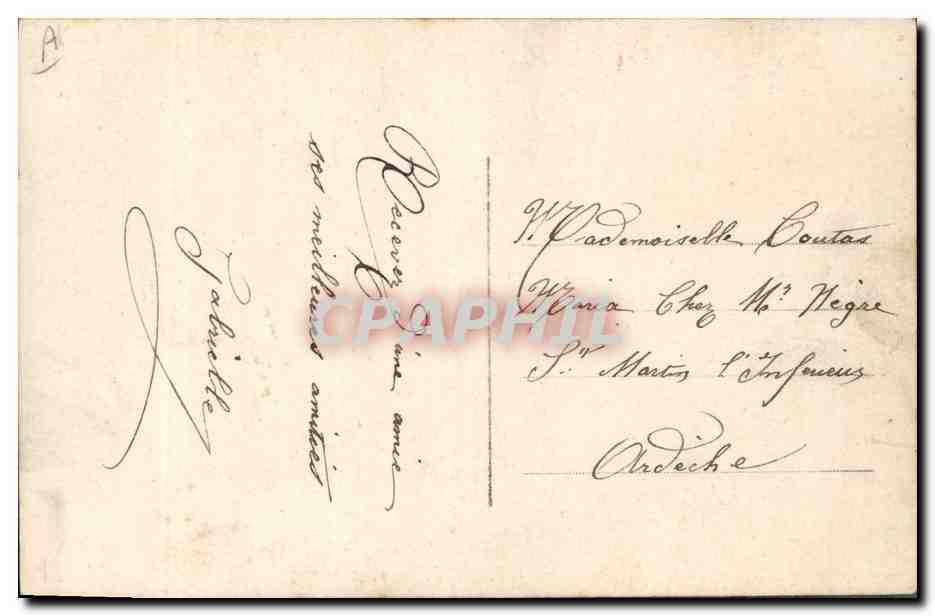 A
Recevez d'une amie
ses meilleures amitiés
Gabrielle
Mademoiselle Coutas
Maria Chez Mr Nègre
St Martin l'Inférieur
Ardèche
CPAPHIL